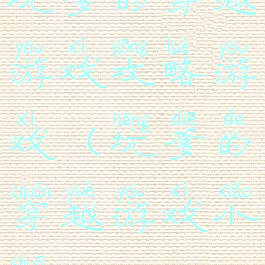 yóu xì gōng lüè yóu
游戏攻略游
xì kēng diē de
戏（坑爹的
chuān yuè yóu xì xiǎo
穿越游戏小